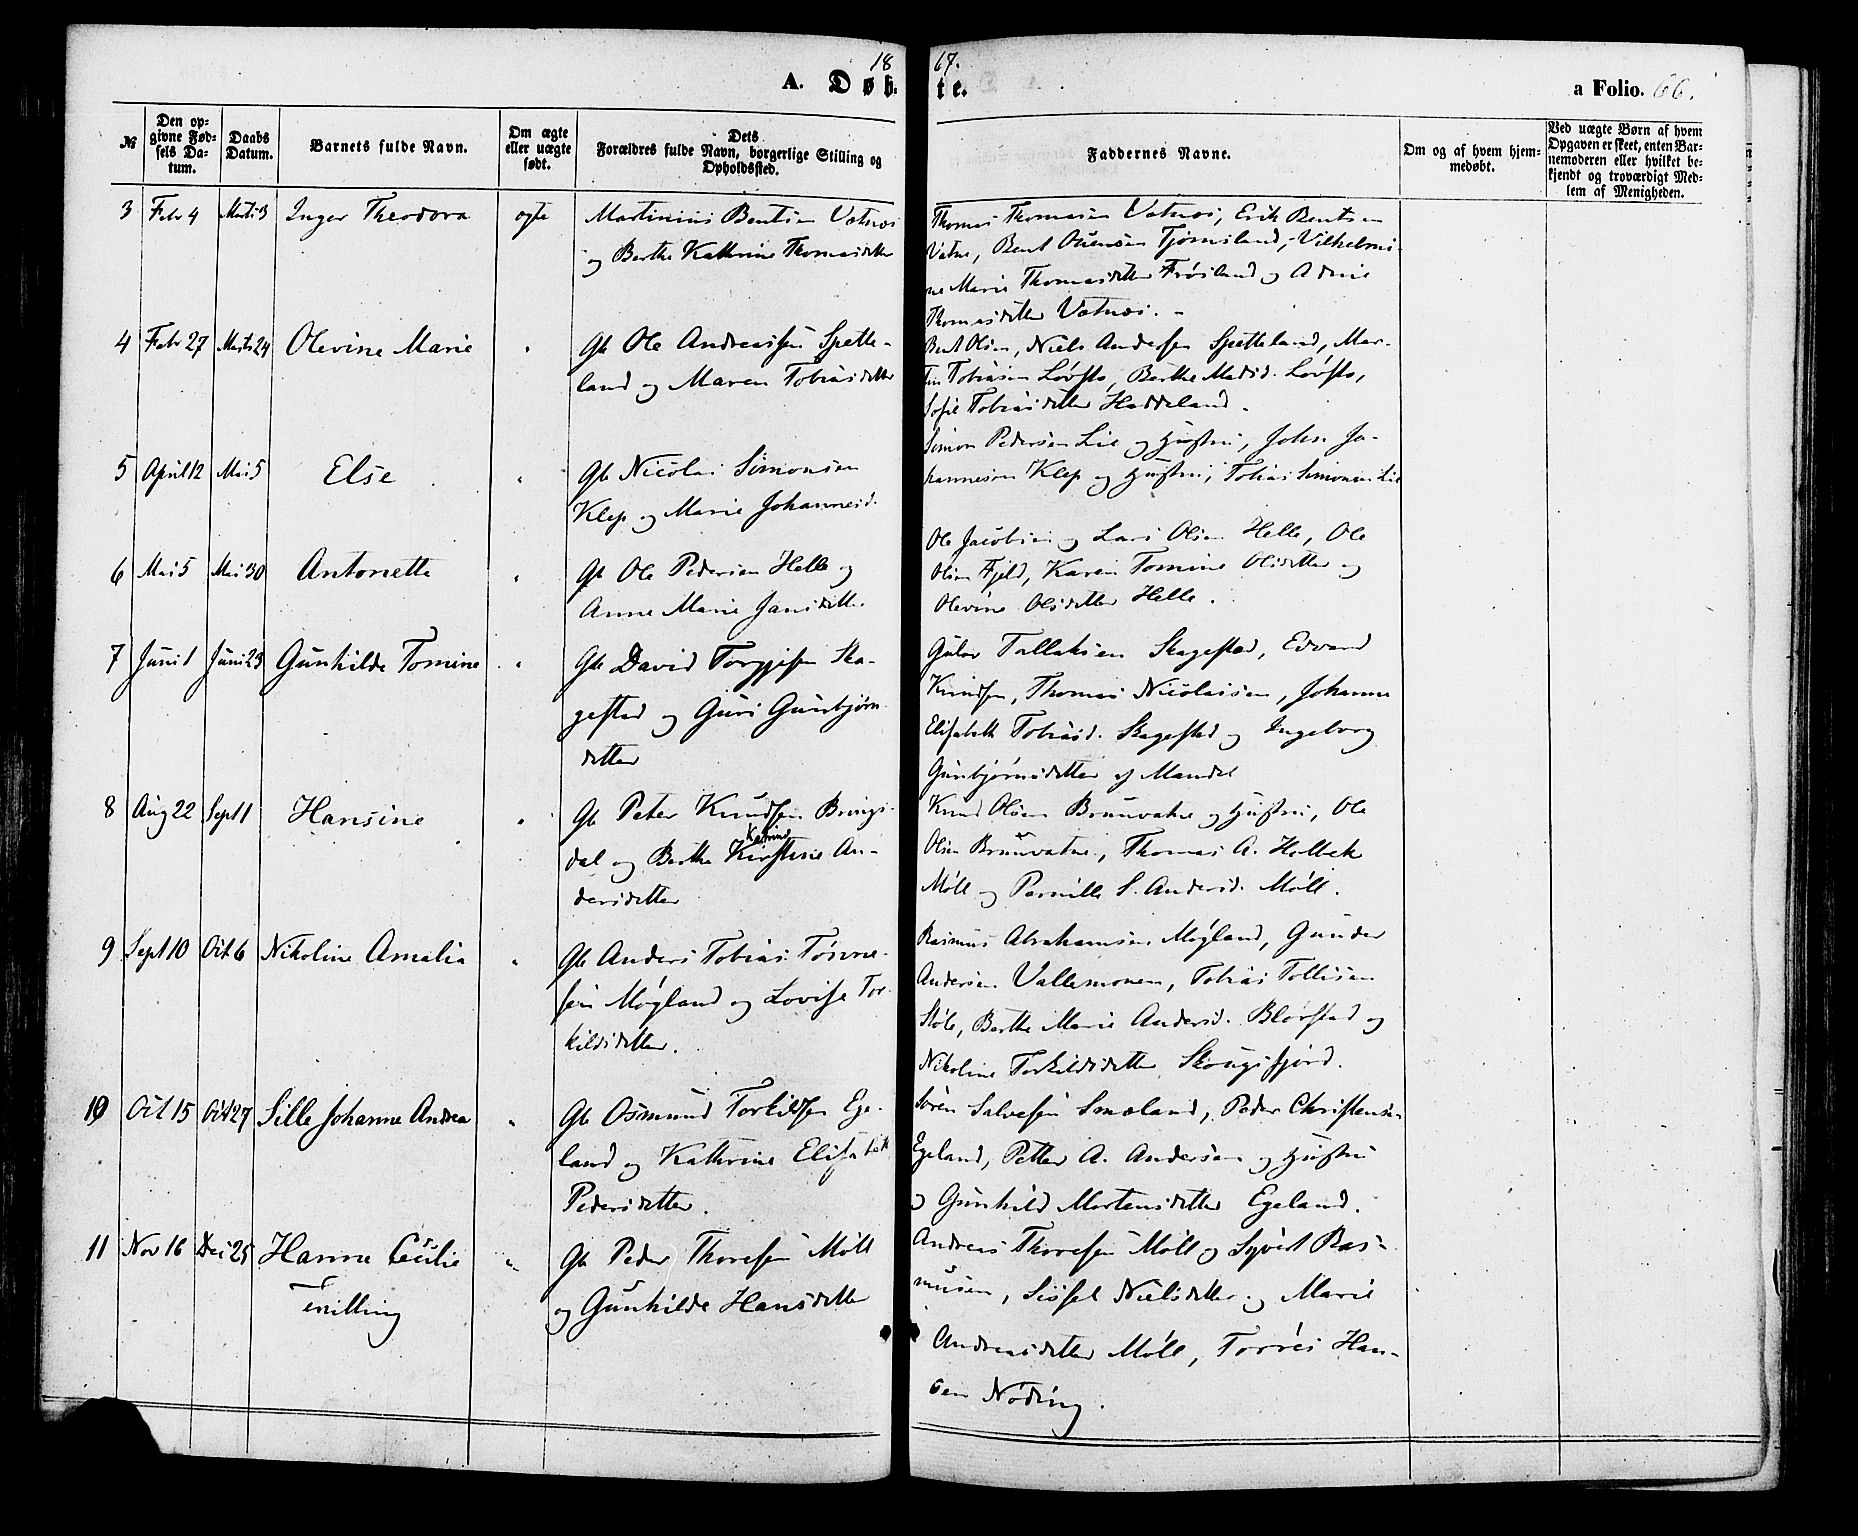 18 67.
A. Døb. te. a Folio. 66.
№
Den op-
givne Fød-
sels Da-
tum.
Daabs
Datum.
Barnets fulde Navn.
Om ægte
eller uægte
født.
Dets
Forældres fulde Navn, borgerlige Stilling og
Opholdssted.
Faddernes Navne.
Om og af hvem hjem-
medøbt.
Ved uægte Børn af hvem
Opgaven er skeet, enten Bar-
nemoderen eller hvilket be-
kjendt og troværdigt Med-
lem af Menigheden.
3 Febr 4 Marts 3 Inger Theodora ægte
Martinius Bentsen Vatnøs
og Berthe Kathrine Thomasdetter
Thomas Thomasen Vatnøs, Erik Bentsen
Vatne, Bent Tjømsland, Vilhelmi-
ne Marie Thomasdetter Frøisland og
Thomasdetter Vatnøs. -
4 Febr 27 Marts 24 Olevine Marie "
Gb Ole Andreassen Spette-
land og Maren Tobiasdetter
Bent Olsen, Niels Andersen Spetteland, Mar-
tin Tobiasen Løvsto, Berthe Løvsto,
Sofie Tobiasdetter Haddeland.
5 April 12 Mai 5 Else "
Gb Nicolai Simonsen
Klep og Marie Johannesd.
Simon Pedersen Lie og Hustru, Johs. Jo-
hannesen Klep og Hustru, Tobias Simonsen Lie
6 Mai 5 Mai 30 Antonette "
Gb Ole Pedersen Helle og
Anne Marie Jansdetter
Ole Jacobsen og Lars Olsen Helle, Ole
Olsen Fjeld, Karen Tomine Olsdetter og
Olevine Olsdetter Helle.
7 Juni 1 Juni 23 Gunhilde Tomine "
Gb David Torgjesen Ska-
gestad og Guri Gunbjørn
detter
Gulov Tallaksen Skagestad, Edvard
Knudsen, Thomas Nicolaisen, Johanne
Elisabeth Tobiasd. Skagestad og Ingeborg
Gunbjørnsdetter af Mandal
8 Aug 22 Sept 1 Hansine "
Gb Peter Knudsen Brings-
dal og Berthe Kirstine An-
Katrine
dersdetter
Knud Olsen Brunvatne og Hustru, Ole
Olsen Brunvatne, Thomas A. Holbek
Møll og Pernille S. Andersd. Møll.
9 Sept 10 Oct 6 Nikoline Amalia "
Gb Anders Tobias Tønne-
sen Møgland og Lovise Tor-
kildsdetter.
Rasmus Abrahamsen Møgland, Gunder
Andersen Vallemonen, Tobias Tollisen
Støle, Berthe Marie Andersd. Blørstad og
Nikoline Torkildsdetter Skougsfjord.
10 Oct 15 Oct 27 Sille Johanne Andrea "
Gb Osmund Torkildsen Ege-
land og Kathrine Elisabeth
Pedersdetter.
Søren Salvesen Smaland, Peder Christensen
Egeland, Petter A. Andersen og Hustru
og Gunhild Mortensdetter Egeland.
11 Nov 16 Dec 25 Hanne Cecilie "
Tvilling
Gb Peder Thoresen Møll
og Gunhilde Hansdetter
Andreas Thoresen Møll og Syvert Ras-
musen, Siøfel Nielsdetter og Marie
Andreasdetter Møll, Torres Han-
sen Nøding.